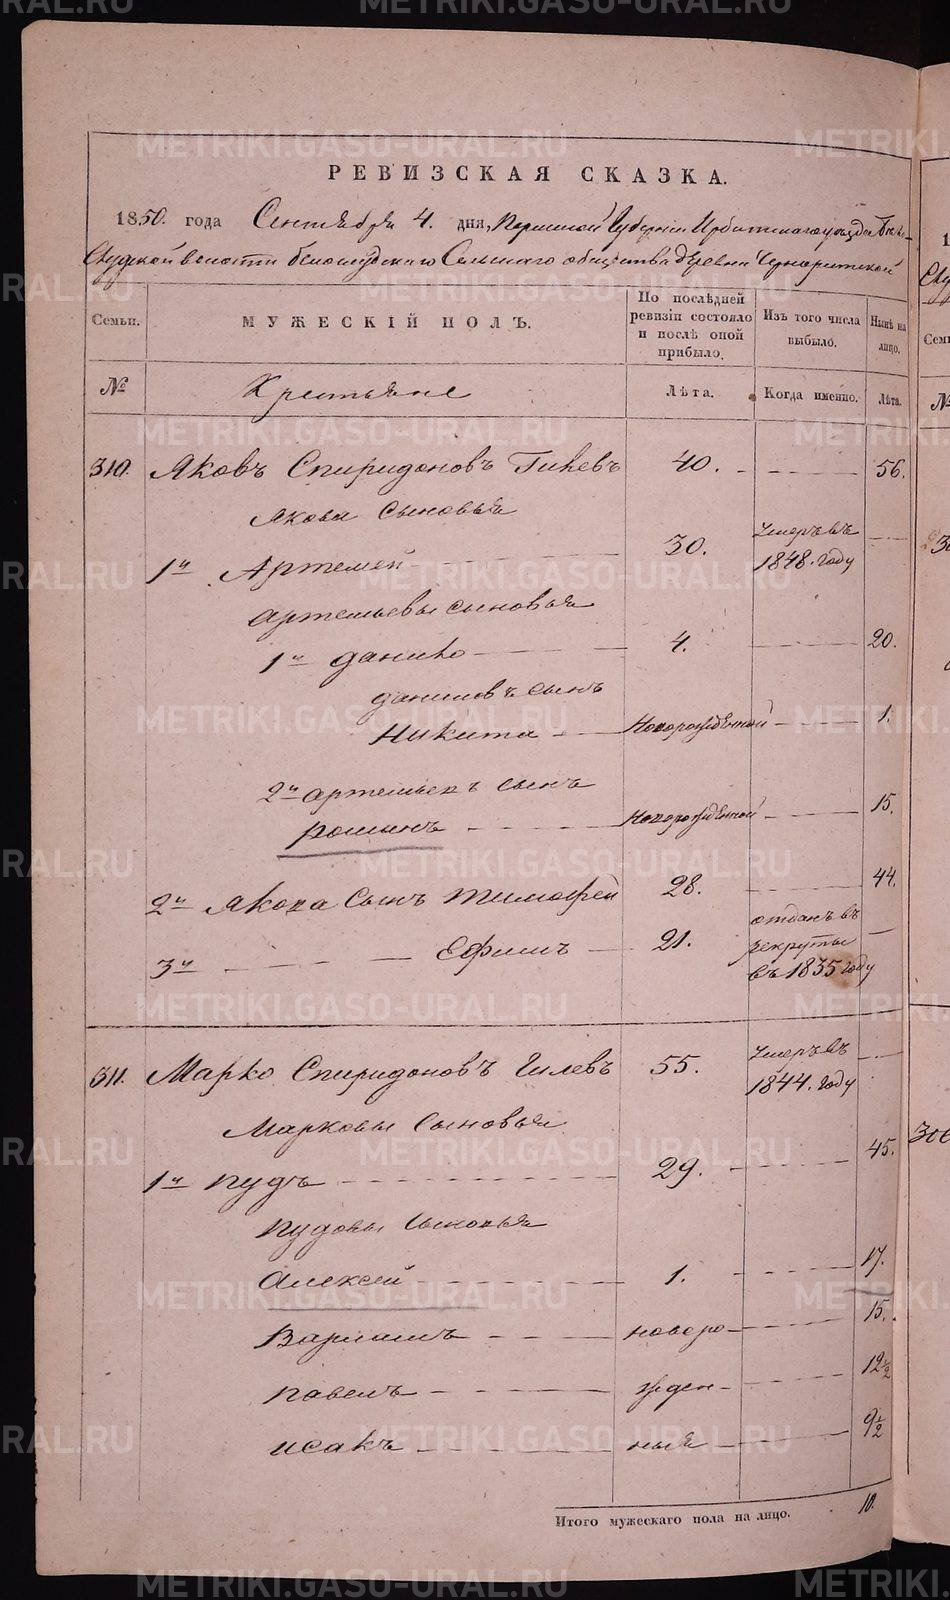 РЕВИЗСКАЯ СКАЗКА.
1850. года Сентября 4. дня, Пермской Губернии Ирбитскаго уезда Бело-
слудской волости белослудскаго Сельскаго общества деревни
Семьи. МУЖЕСКІЙ ПОЛЪ. По послѣдней ревизіи состояло и послѣ оной прибыло. Изъ того числа выбыло. Нынѣ на лицо.
№ Крестьяне Лѣта. Когда именно. Лѣта.
310. Яковъ Спиридоновъ Гилевъ 40. 56.
Якова Сыновья
1й Артемей 30. Умеръ въ 1848. году
Артемьевы сыновья
1й данило 4. 20.
даниловъ сынъ
Никита Новорожденной 1.
2й артемьевъ сынъ
романъ Новорожденной 15.
2й Якова Сынъ Тимофей 28. 44.
3й Ефимъ 21. отданъ въ рекруты въ 1835 году
311. Марко Спиридоновъ Гилевъ 55. Умеръ въ 1844. году
Марковы Сыновья
1й пудъ 29. 45.
пудовы Сыновья
Алексей 1. 17.
Варламъ новоро- 15.
павелъ жден- 12½
исакъ ныя 9½
Итого мужескаго пола на лицо. 10.
METRIKI.GASO-URAL.RU